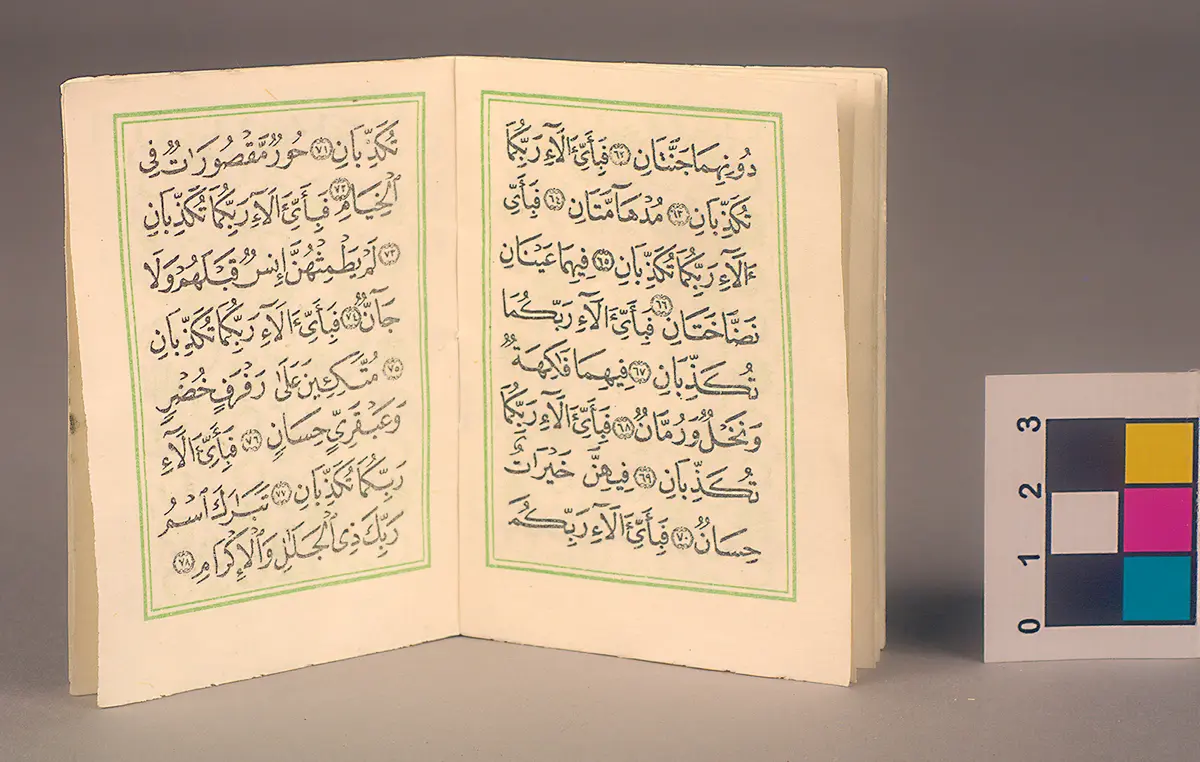 دُونِهِمَا جَنَّتَانِ ٦٢ فَبِأَيِّ ءَالَآءِ رَبِّكُمَا
تُكَذِّبَانِ ٦٣ مُدْهَآمَّتَانِ ٦٤ فَبِأَيِّ
ءَالَآءِ رَبِّكُمَا تُكَذِّبَانِ ٦٥ فِيهِمَا عَيْنَانِ
نَضَّاخَتَانِ ٦٦ فَبِأَيِّ ءَالَآءِ رَبِّكُمَا
تُكَذِّبَانِ ٦٧ فِيهِمَا فَٰكِهَةٌ
وَنَخْلٌ وَرُمَّانٌ ٦٨ فَبِأَيِّ ءَالَآءِ رَبِّكُمَا
تُكَذِّبَانِ ٦٩ فِيهِنَّ خَيْرَٰتٌ
حِسَانٌ ٧٠ فَبِأَيِّ ءَالَآءِ رَبِّكُمَا
تُكَذِّبَانِ ٧١ حُورٌ مَّقْصُورَٰتٌ فِي
ٱلْخِيَامِ ٧٢ فَبِأَيِّ ءَالَآءِ رَبِّكُمَا تُكَذِّبَانِ
٧٣ لَمْ يَطْمِثْهُنَّ إِنسٌ قَبْلَهُمْ وَلَا
جَآنٌّ ٧٤ فَبِأَيِّ ءَالَآءِ رَبِّكُمَا تُكَذِّبَانِ
٧٥ مُتَّكِـِٔينَ عَلَىٰ رَفْرَفٍ خُضْرٍ
وَعَبْقَرِيٍّ حِسَانٍ ٧٦ فَبِأَيِّ ءَالَآءِ
رَبِّكُمَا تُكَذِّبَانِ ٧٧ تَبَٰرَكَ ٱسْمُ
رَبِّكَ ذِي ٱلْجَلَٰلِ وَٱلْإِكْرَامِ ٧٨
3
2
1
0